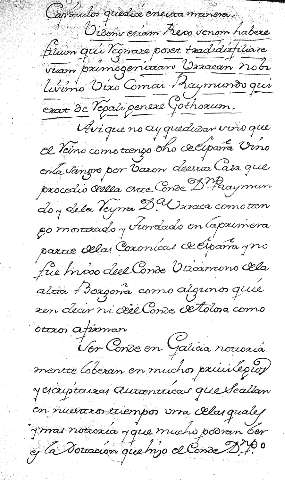 Capitulos quedize en esta manera.
Videns etiam Rex se non habere
filium qui Regnaret post tradidit filiam
suam primogenitam Urracam nobi
lissimo Viro Comiti Raymundo qui
erat de Regali genere Gothorum.
Asi que no ay que dudar sino que
el Reino como tengo dho de España vino
en la sangre por Varon de esta Casa que
procedio de la este Conde Dn. Raymun
do y de la Reyna Da. Urraca como ten
go mostrado y fundado en la primera
parte de las Coronicas de España y no
fue hijo del Conde de la
alta Borgoña como algunos quie
ren decir ni del Conde de Tolosa como
otros afirman
Ser Conde en Galicia notoria
mente lo veran en muchos privilegios
y escripturas autenticas que se allan
en nuestros tiempos una de las quales
y mas notoria y que mucho podran ver
es la Donacion que hijo el Conde D. Rdo